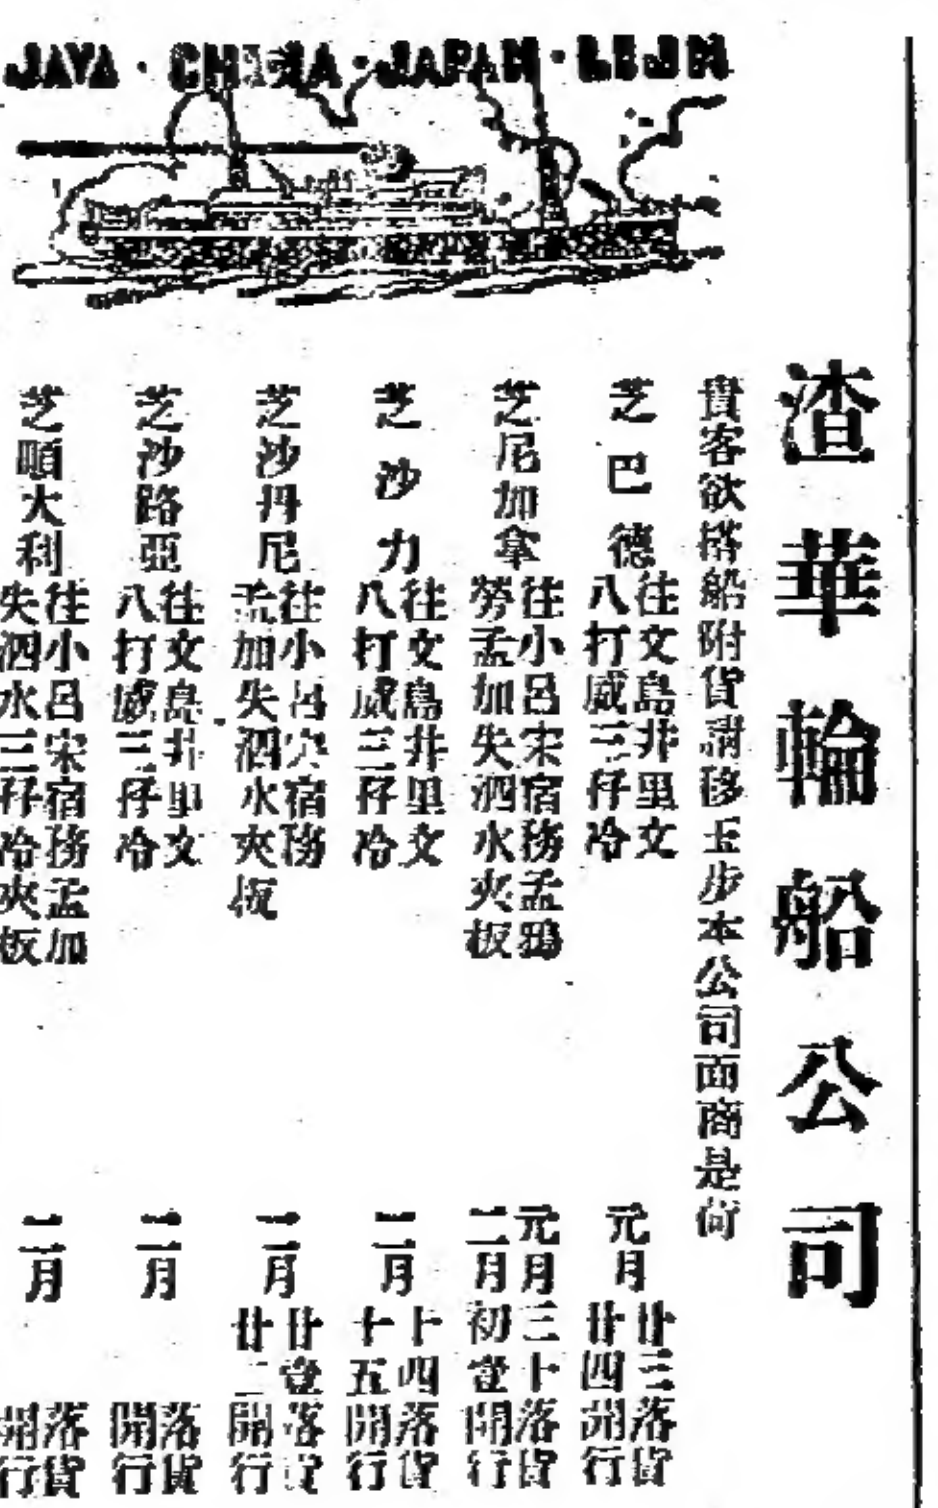 JAVA · CHINA · JAPAN · LIJN
渣華輪船公司
貴客欲搭船附貨請移玉步本公司面商是荷
芝巴德
往文島井里文
八打威三孖冷
元月
廿三落貨
廿四開行
芝尼加拿
往小呂宋宿務孟鴉
勞孟加失泗水夾板
元月三十落貨
二月初壹開行
芝沙力
往文島井里文
八打威三孖冷
二月
十四落貨
十五開行
芝沙丹尼
往小呂宋宿務
孟加失泗水夾板
二月
廿壹落貨
廿二開行
芝沙路亞
往文島井里文
八打威三孖冷
二月
落貨
開行
芝順大利
往小呂宋宿務孟加
失泗水三孖冷夾板
二月
落貨
開行